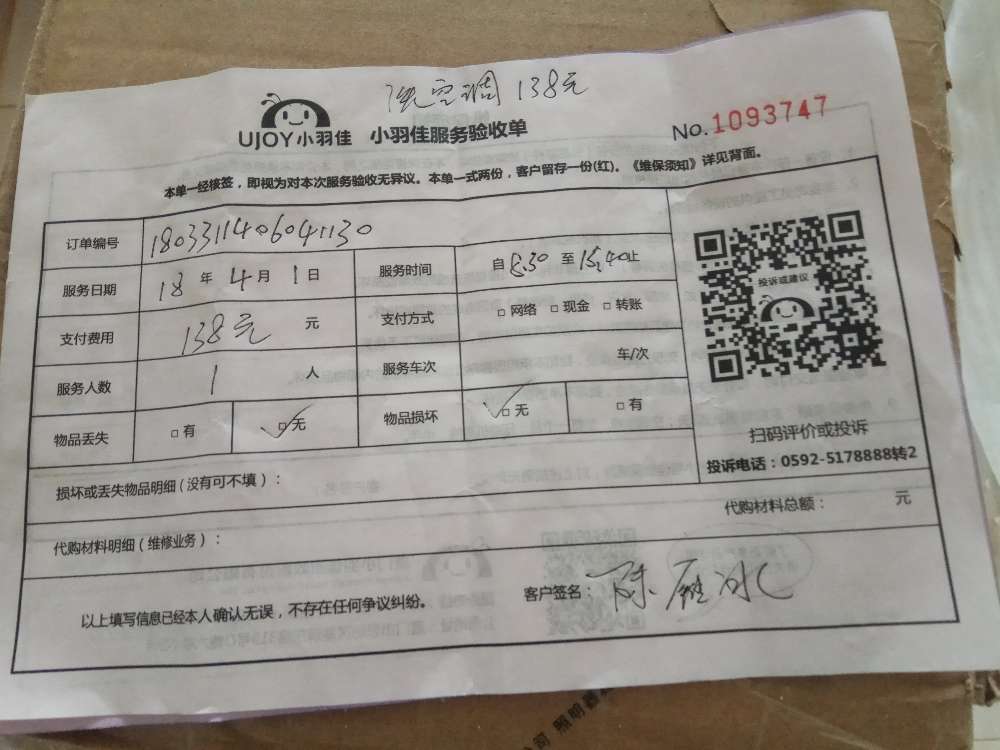 洗空调 138元
UJOY小羽佳 小羽佳服务验收单
No. 1093747
本单一经核签，即视为对本次服务验收无异议。本单一式两份，客户留存一份(红)。《维保须知》详见背面。
订单编号 1803311406041130
服务日期 18 年 4 月 1 日 服务时间 自 8.30 至 15.40 止
支付费用 138元 元 支付方式 □ 网络 □ 现金 □ 转账
服务人数 1 人 服务车次 车/次
物品丢失 □ 有 ✓□ 无 物品损坏 ✓□ 无 □ 有
投诉或建议
扫码评价或投诉
投诉电话：0592-5178888转2
损坏或丢失物品明细（没有可不填）：
代购材料明细（维修业务）： 代购材料总额： 元
以上填写信息已经本人确认无误，不存在任何争议纠纷。 客户签名：陈雁冰
司 照明